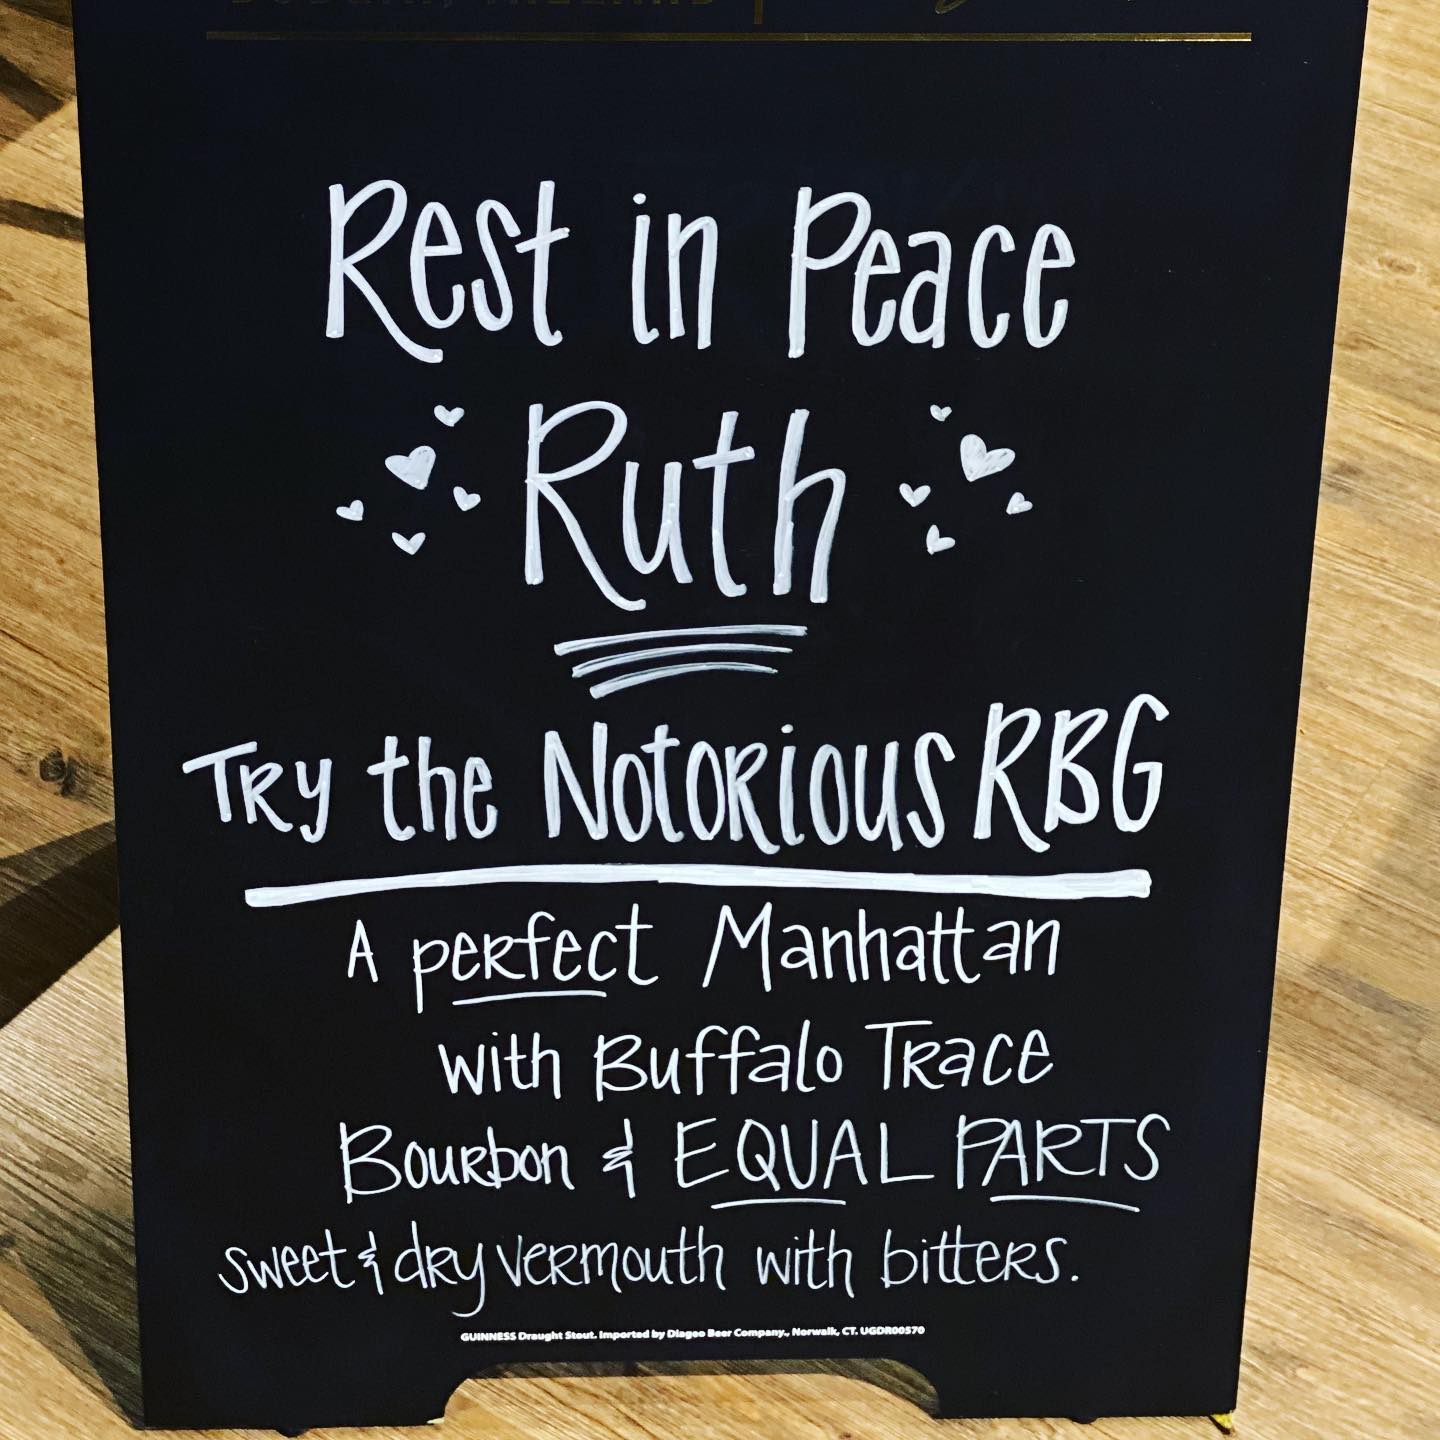 Rest in Peace
Ruth
Try the Notorious RBG
A perfect Manhattan
with Buffalo Trace
Bourbon & EQUAL PARTS
sweet & dry vermouth with bitters.
GUINNESS Draught Stout. Imported by Diageo Beer Company., Norwalk, CT. UGDR00570